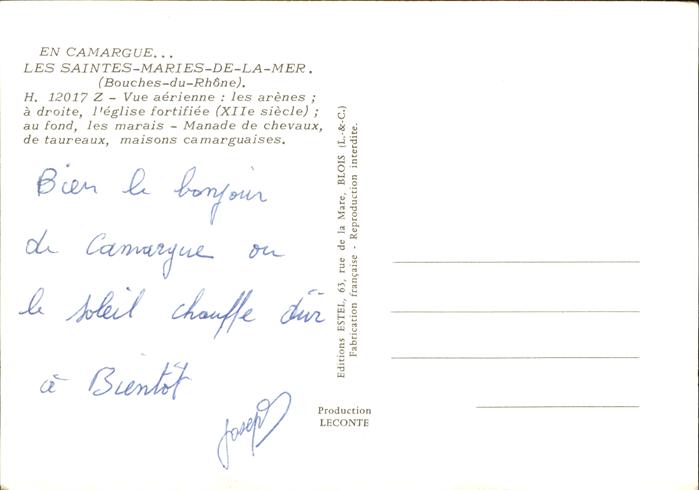 EN CAMARGUE...
LES SAINTES-MARIES-DE-LA-MER.
(Bouches-du-Rhône).
H. 12017 Z - Vue aérienne : les arènes ;
à droite, l'église fortifiée (XIIe siècle) ;
au fond, les marais - Manade de chevaux,
de taureaux, maisons camarguaises.
Bien le bonjour
de Camargue ou
le soleil chauffe dûr
à Bientôt
Joseph
Editions ESTEL, 63, rue de la Mare, BLOIS (L.-&-C.)
Fabrication française - Reproduction interdite.
Production
LECONTE